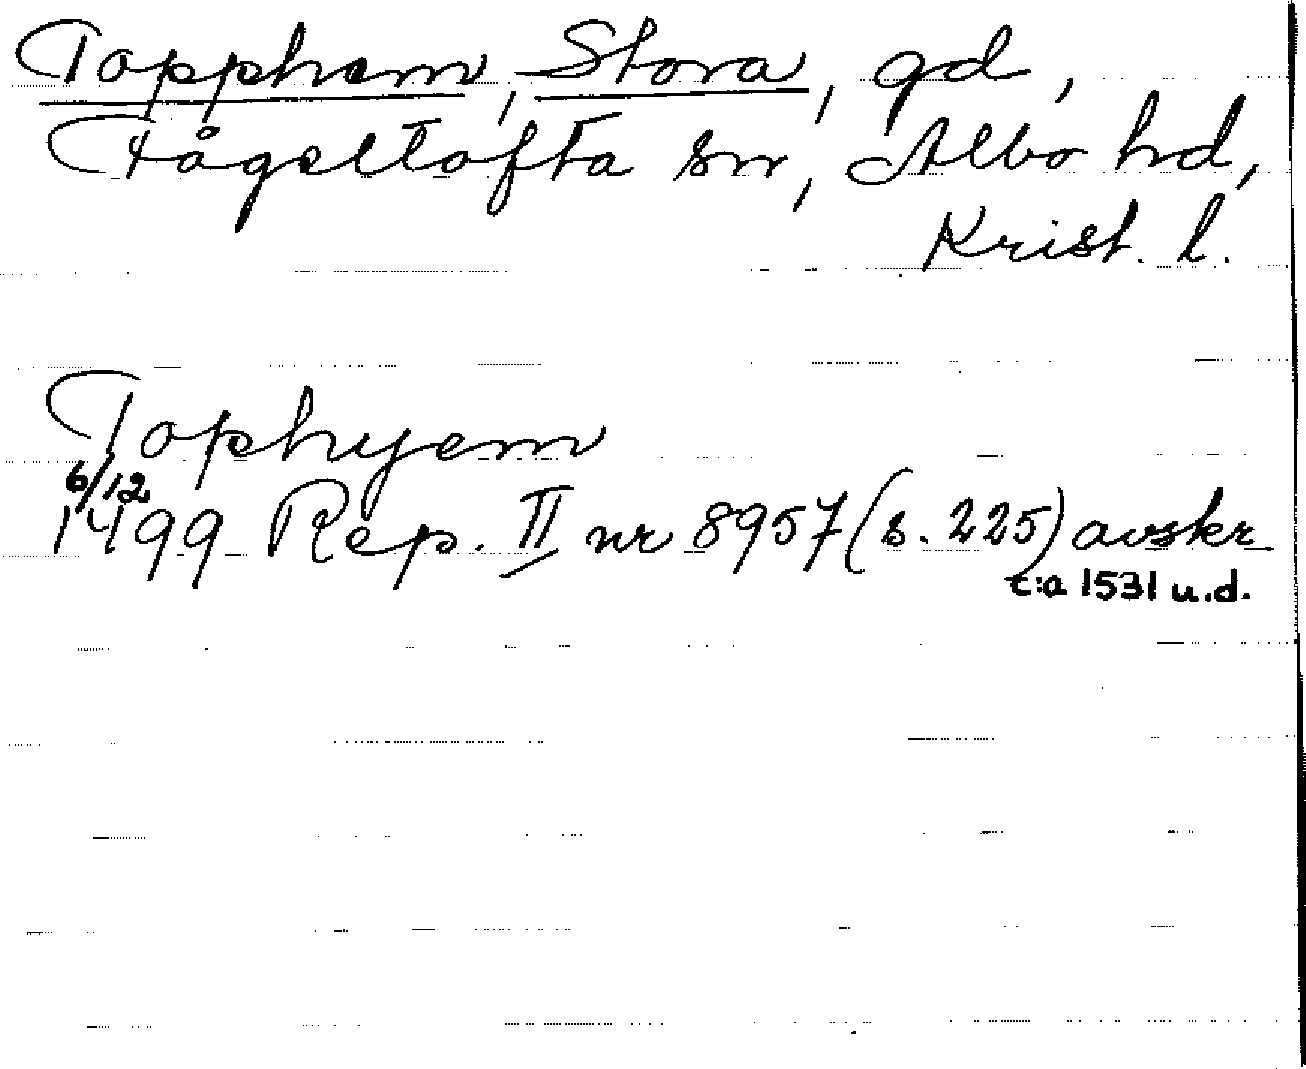 Topphem, Stora, gd,
Fågeltofta sn, Albo hd,
Krist. l.
Tophyem
6/12
1499 Rep. II nr 8957 (s. 225) avskr
c:a 1531 u.d.